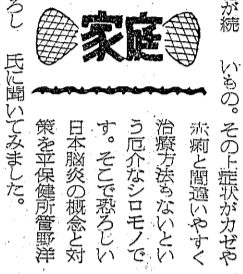 家庭
が続 いもの。その上症状がカゼや
赤痢と間違いやすく
治療方法もないとい
う厄介なシロモノで
す。そこで恐ろしい
日本脳炎の概念と対
策を平保健所管野洋
ろし 氏に聞いてみました。